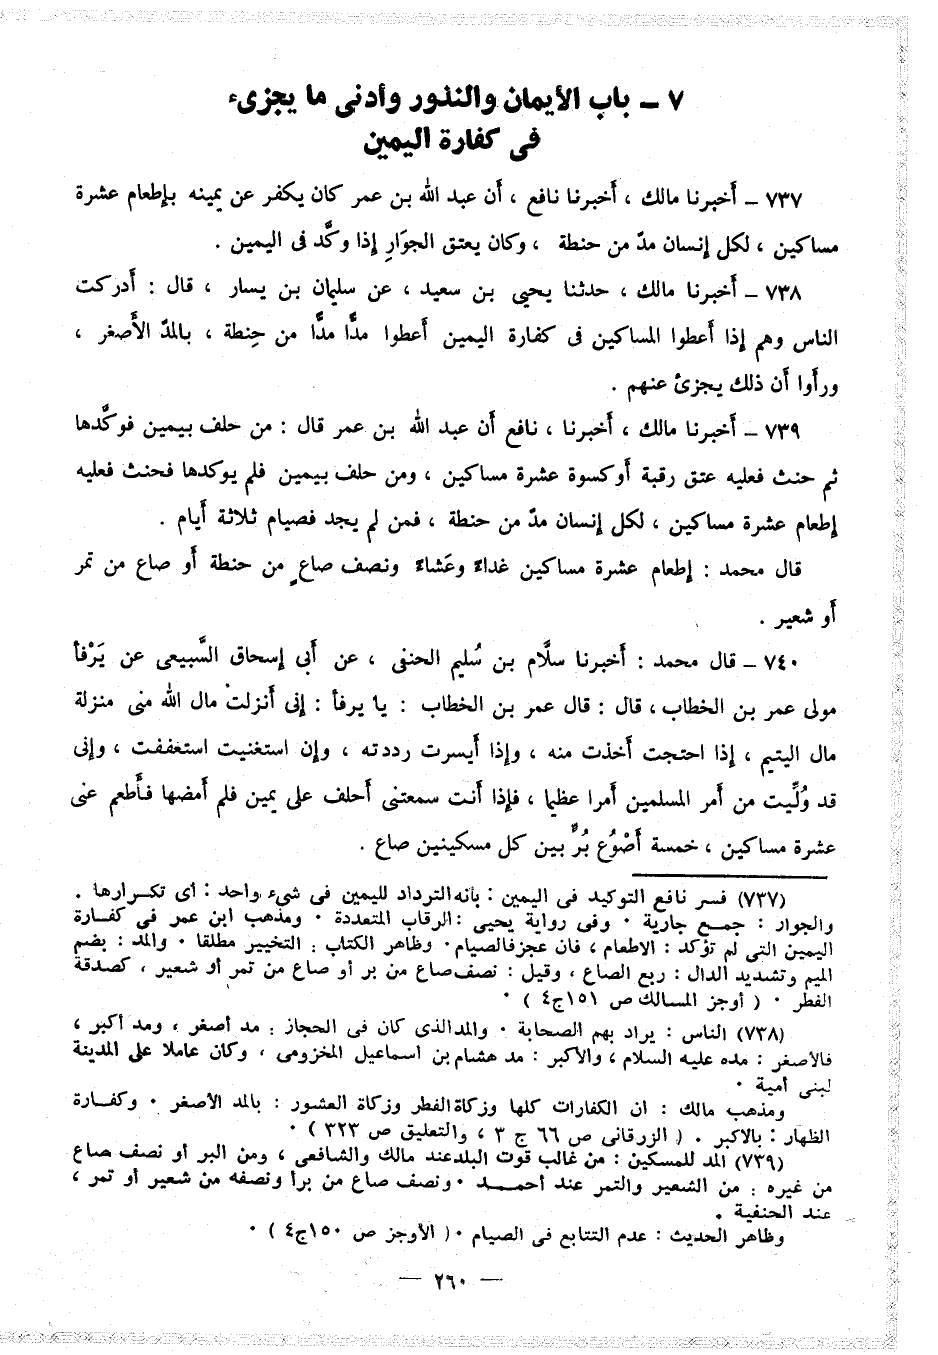 ٧ ــ باب الأيمان والنذور وأدنى ما يجزىء
فى كفارة اليمين
٧٣٧ ــ أَخبرنا مالك ، أَخبرنا نافع ، أَن عبد الله بن عمر كان يكفر عن يمينه بإِطعام عشرة
مساكين ، لكل إِنسان مدّ من حنطة ، وكان يعتق الجوَارِ إِذا وكَّد فى اليمين .
٧٣٨ ــ أَخبرنا مالك ، حدثنا يحيى بن سعيد ، عن سليمان بن يسار ، قال : أَدركت
الناس وهم إِذا أَعطوا المساكين فى كفارة اليمين أَعطوا مدًّا مدًّا من حِنطة ، بالمدّ الأَصغر ،
ورأَوا أَن ذلك يجزئ عنهم .
٧٣٩ ــ أَخبرنا مالك ، أَخبرنا ، نافع أَن عبد الله بن عمر قال : من حلف بيمين فوكَّدها
ثم حنث فعليه عتق رقبة أَو كسوة عشرة مساكين ، ومن حلف بيمين فلم يوكدها فحنث فعليه
إِطعام عشرة مساكين ، لكل إِنسان مدّ من حنطة ، فمن لم يجد فصيام ثلاثة أَيام .
قال محمد : إِطعام عشرة مساكين غداءً وعَشاءً ونصف صاعٍ من حنطة أَو صاع من تمر
أَو شعير .
٧٤٠ ــ قال محمد : أَخبرنا سلَّام بن سُليم الحنفى ، عن أَبى إِسحاق السَّبيعى عن يَرْفأَ
مولى عمر بن الخطاب ، قال : قال عمر بن الخطاب : يا يرفأ : إِنى أَنزلت مال الله منى منزلة
مال اليتيم ، إِذا احتجت أَخذت منه ، وإِذا أَيسرت رددته ، وإِن استغنيت استعففت ، وإِنى
قد وُلِّيت من أَمر المسلمين أَمرا عظيما ، فإِذا أَنت سمعتنى أَحلف على يمين فلم أَمضها فأَطعم عنى
عشرة مساكين ، خمسة أَصْوُع بُرٍّ بين كل مسكينين صاع .
(٧٣٧) فسر نافع التوكيد فى اليمين : بأنه الترداد لليمين فى شىء واحد : أى تكرارها .
والجوار : جمع جارية . وفى رواية يحيى : الرقاب المتعددة . ومذهب ابن عمر فى كفارة
اليمين التى لم تؤكد : الاطعام ، فان عجز فالصيام . وظاهر الكتاب : التخيير مطلقا . والمد : بضم
الميم وتشديد الدال : ربع الصاع ، وقيل : نصف صاع من بر أو صاع من تمر أو شعير ، كصدقة
الفطر . ( أوجز المسالك ص ١٥١ ج ٤ ) .
(٧٣٨) الناس : يراد بهم الصحابة . والمد الذى كان فى الحجاز : مد أصغر ، ومد أكبر ،
فالأصغر : مده عليه السلام ، والأكبر : مد هشام بن اسماعيل المخزومى ، وكان عاملا على المدينة
لبنى أمية .
ومذهب مالك : ان الكفارات كلها وزكاة الفطر وزكاة العشور : بالمد الأصغر . وكفارة
الظهار : بالاكبر . ( الزرقانى ص ٦٦ ج ٣ ، والتعليق ص ٣٢٣ ) .
(٧٣٩) المد للمسكين : من غالب قوت البلد عند مالك والشافعى ، ومن البر أو نصف صاع
من غيره : من الشعير والتمر عند أحمد . ونصف صاع من برأ ونصفه من شعير أو تمر ،
عند الحنفية .
وظاهر الحديث : عدم التتابع فى الصيام . ( الأوجز ص ١٥٠ ج ٤ ) .
— ٢٦٠ —